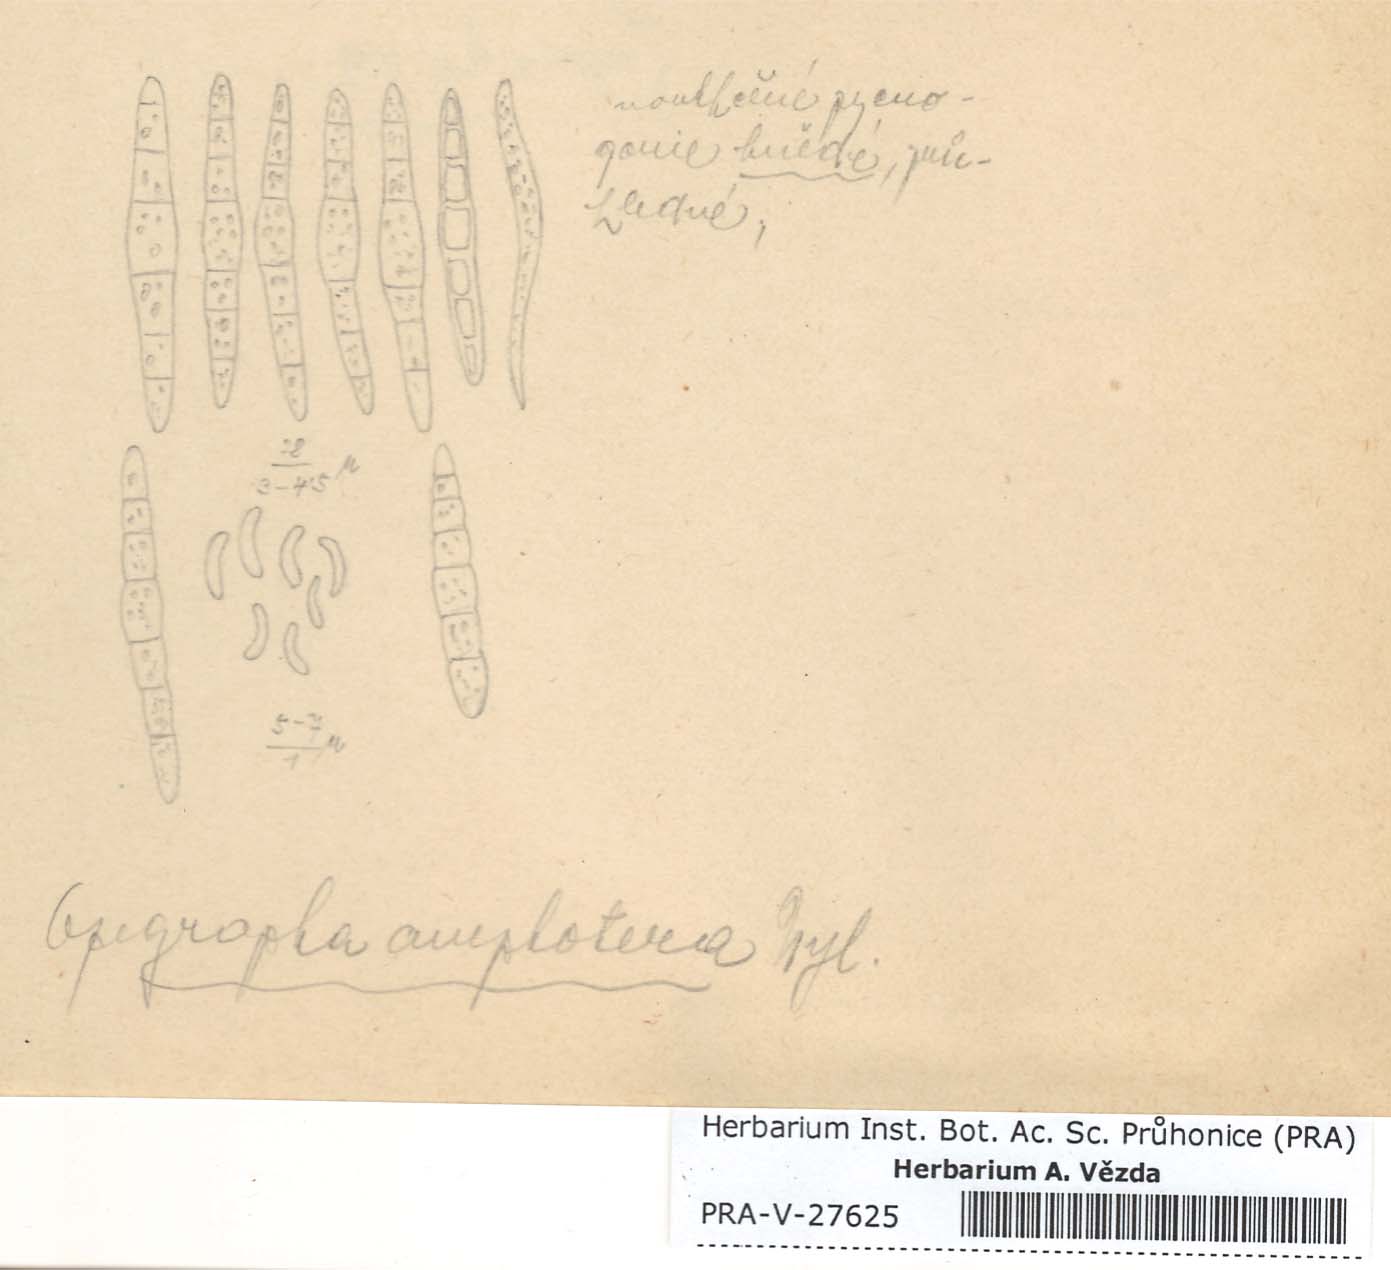 gonie hnědé, prů-
hledné,
28
3-4'5 μ
5-7
1 μ
Opegrapha amphotera Nyl.
Herbarium Inst. Bot. Ac. Sc. Průhonice (PRA)
Herbarium A. Vězda
PRA-V-27625